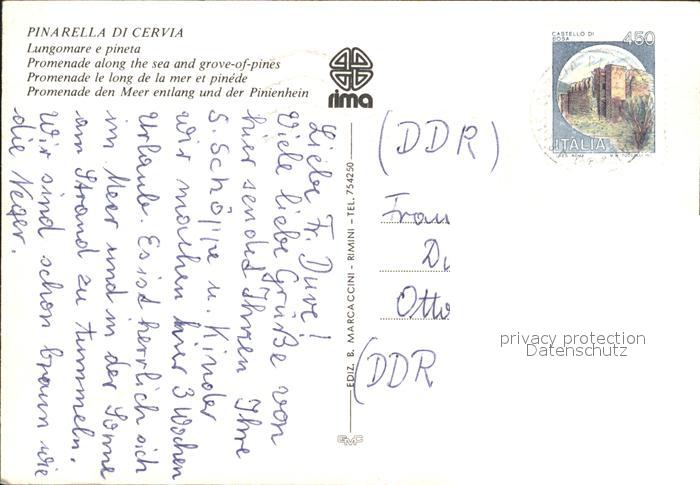 PINARELLA DI CERVIA
Lungomare e pineta
Promenade along the sea and grove-of-pines
Promenade le long de la mer et pinéde
Promenade den Meer entlang und der Pinienhein
rima
CASTELLO DI
BOSA
450
ITALIA
Liebe Fr. Duve!
Viele liebe Grüße von
hier sendet Ihnen Ihre
S. Schöppe u. Kinder
wir machen hier 3 Wochen
Urlaub. Es ist herrlich sich
im Meer und in der Sonne
am Strand zu tummeln.
Wir sind schon braun wie
die Neger.
EDIZ. B. MARCACCINI - RIMINI - TEL. 754250
(DDR)
Frau
D
Otto
(DDR
privacy protection
Datenschutz